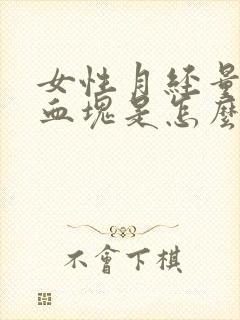 女性月经量
血塊是怎麼
不會下棋